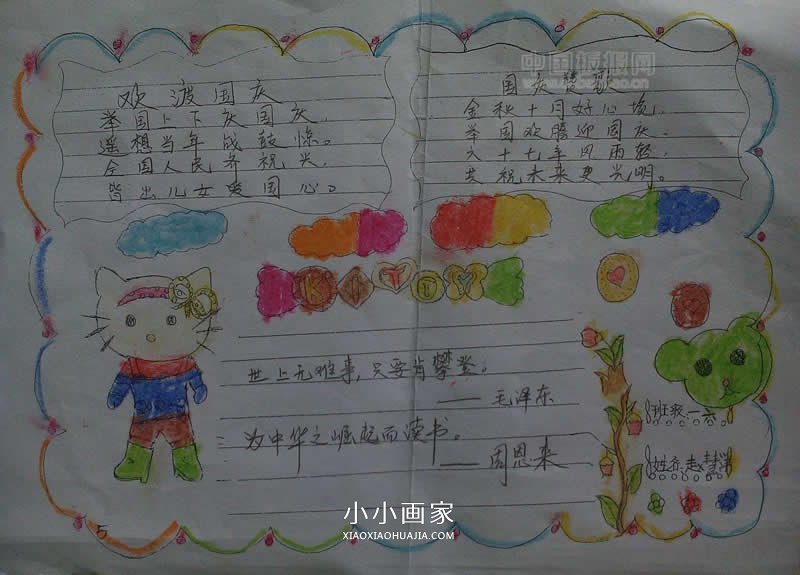 欢渡国庆
举国上下庆国庆.
遥想当年战鼓惊。
全国人民齐祝兴.
皆出儿女爱国心。
中国板报网
国庆赞歌
金秋十月好心境.
举国欢腾迎国庆.
六十七年风雨轻.
共祝未来更光明。
KITTY
世上无难事,只要肯攀登。
——毛泽东
为中华之崛起而读书。
——周恩来
班级:一六
姓名:赵慧
5
小小画家
XIAOXIAOHUAJIA.COM